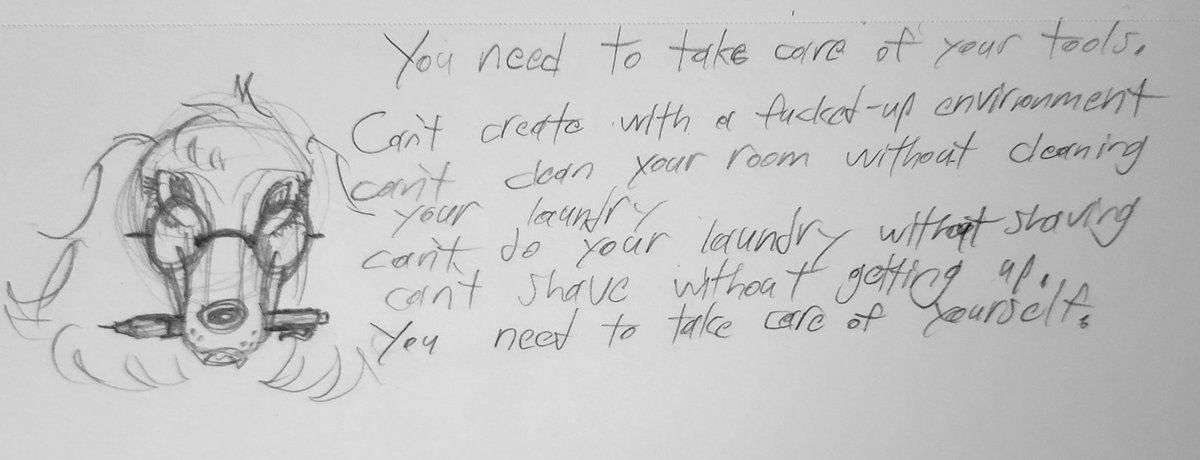 You need to take care of your tools.
Can't create with a fucked-up environment
can't clean your room without cleaning
your laundry
can't do your laundry without shaving
can't shave without getting up.
You need to take care of yourself.